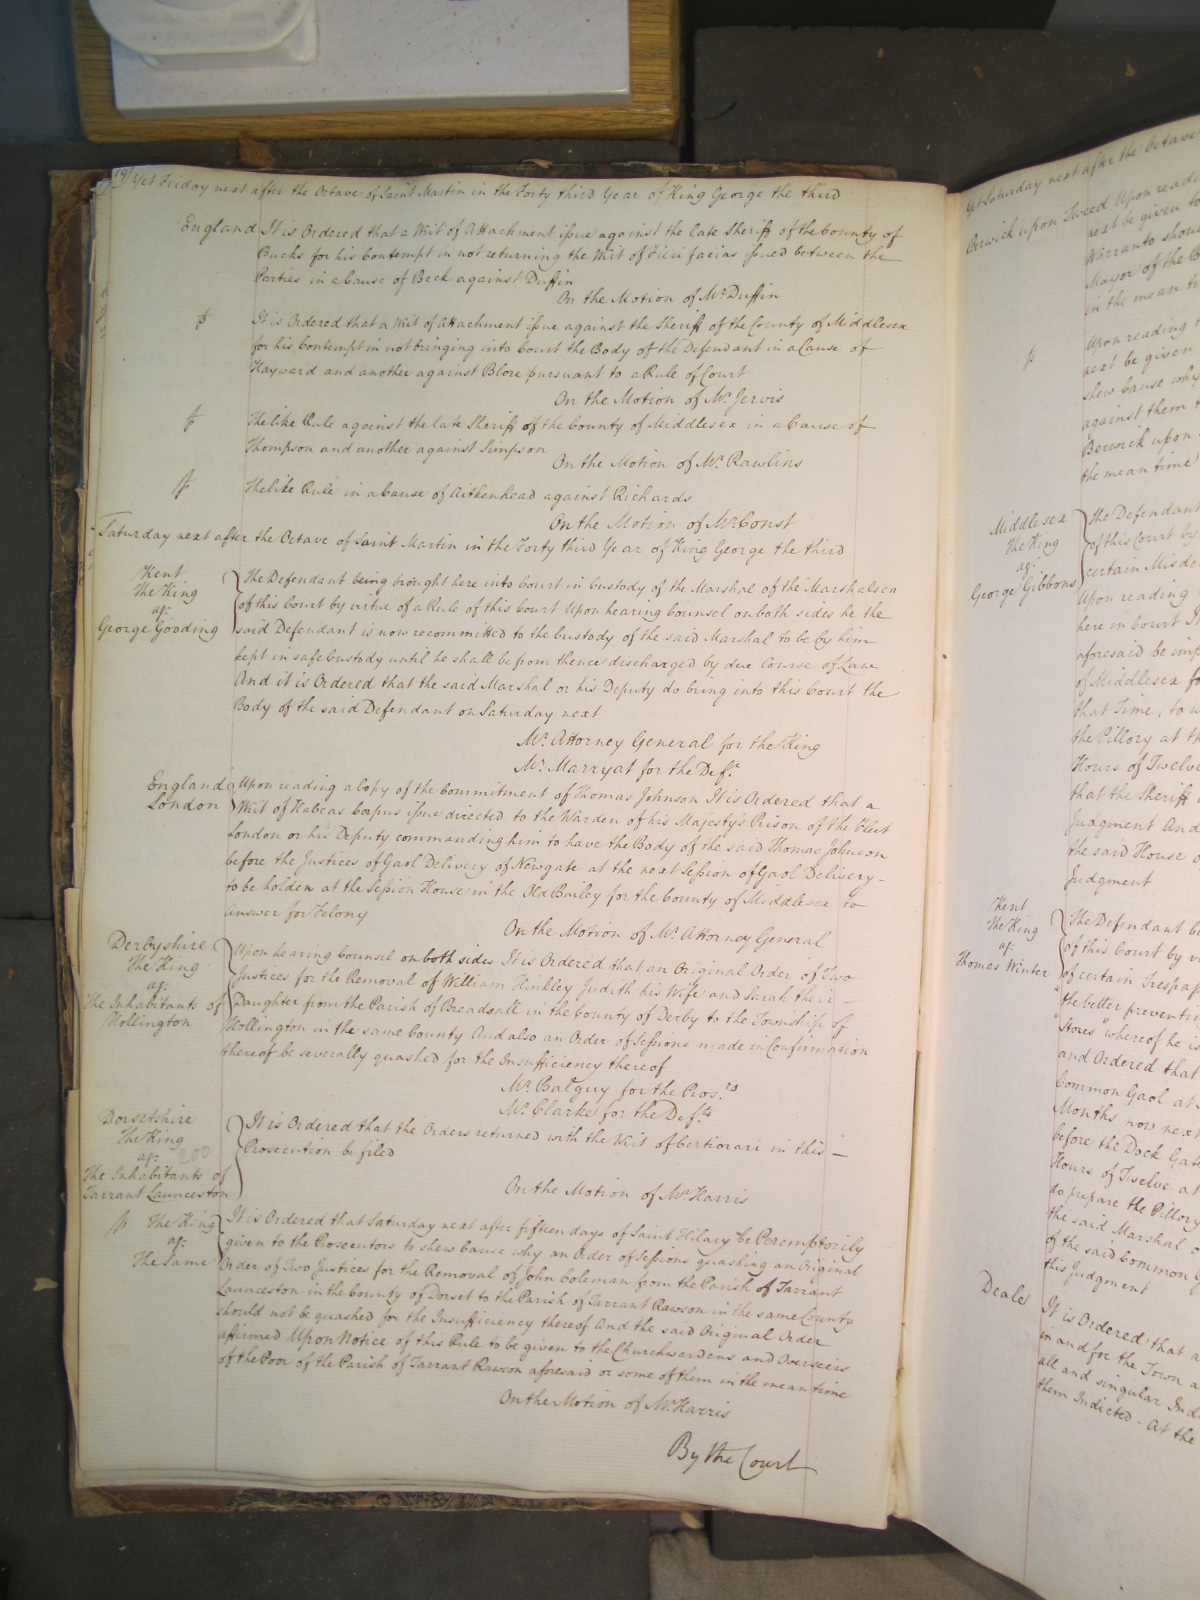 19) Yet Friday next after the Octave of Saint Martin in the Forty third Year of King George the third
England It is Ordered that a Writ of Attachment issue against the late Sheriff of the County of
Bucks for his Contempt in not returning the Writ of Fieri facias issued between the
Parties in a Cause of Beck against Duffin
On the Motion of Mr. Duffin
It is Ordered that a Writ of Attachment issue against the Sheriff of the County of Middlesex
for his Contempt in not bringing into Court the Body of the Defendant in a Cause of
Hayward and another against Blore pursuant to a Rule of Court
On the Motion of Mr. Jervis
The like Rule against the late Sheriff of the County of Middlesex in a Cause of
Thompson and another against Simpson
On the Motion of Mr. Rawlins
The like Rule in a Cause of Aitkenhead against Richards
On the Motion of Mr. Const
Saturday next after the Octave of Saint Martin in the Forty third Year of King George the third
Kent
The King
agt.
George Gooding
The Defendant being brought here into Court in Custody of the Marshal of the Marshalsea
of this Court by virtue of a Rule of this Court Upon hearing Counsel on both sides he the
said Defendant is now recommitted to the Custody of the said Marshal to be by him
kept in safe Custody until he shall be from thence discharged by due Course of Law
And it is Ordered that the said Marshal or his Deputy do bring into this Court the
Body of the said Defendant on Saturday next
Mr. Attorney General for the King
Mr. Marryat for the Deft.
England
London
Upon reading a Copy of the Commitment of Thomas Johnson It is Ordered that a
Writ of Habeas Corpus issue directed to the Warden of his Majesty's Prison of the Fleet
London or his Deputy commanding him to have the Body of the said Thomas Johnson
before the Justices of Gaol Delivery of Newgate at the next Session of Gaol Delivery
to be holden at the Session House in the Old Bailey for the County of Middlesex to
Answer for Felony
On the Motion of Mr. Attorney General
Derbyshire
The King
agt.
The Inhabitants of
Hollington
Upon hearing Counsel on both sides It is Ordered that an Original Order of Two
Justices for the Removal of William Hinkley Judith his Wife and Sarah their
Daughter from the Parish of Breadsall in the County of Derby to the Township of
Hollington in the same County And also an Order of Sessions made in Confirmation
thereof be severally quashed for the Insufficiency thereof
Mr. Balguy for the Pros.rs
Mr. Clarke for the Def.ts
Dorsetshire
The King
agt. 200
The Inhabitants of
Tarrant Launceston
It is Ordered that the Orders returned with the Writ of Certiorari in this
Prosecution be filed
On the Motion of Mr. Harris
The King
agt.
The Same
It is Ordered that Saturday next after fifteen days of Saint Hilary be Peremptorily
given to the Prosecutors to shew Cause why an Order of Sessions quashing an Original
Order of Two Justices for the Removal of John Coleman from the Parish of Tarrant
Launceston in the County of Dorset to the Parish of Tarrant Rawson in the same County
should not be quashed for the Insufficiency thereof And the said Original Order
affirmed Upon Notice of this Rule to be given to the Churchwardens and Overseers
of the Poor of the Parish of Tarrant Rawson aforesaid or some of them in the mean time
On the Motion of Mr. Harris
By the Court
Yet Saturday next after the Octave
Berwick upon Tweed Upon readi
next be given to
Warranto shou
Mayor of the B
in the mean ti
Upon reading t
next be given
shew Cause why
against them t
Berwick upon
the mean time
Middlesex
The King
agt.
George Gibbons
The Defendant
of this Court by
certain Misde
Upon reading
here in Court It
aforesaid be imp
of Middlesex fo
that Time, to w
the Pillory at th
Hours of Twelve
that the Sheriff
Judgment And
the said House o
Judgment
Kent
The King
agt.
Thomas Winter
The Defendant be
of this Court by vi
of certain Trespass
"the better preventin
"Stores" whereof he is
and Ordered that
Common Gaol at
Months now next
before the Dock Gate
Hours of Twelve at
to prepare the Pillory
the said Marshal o
of the said Common G
this Judgment
Deale
It is Ordered that a
in and for the Town a
all and singular Indi
them Indicted - At the